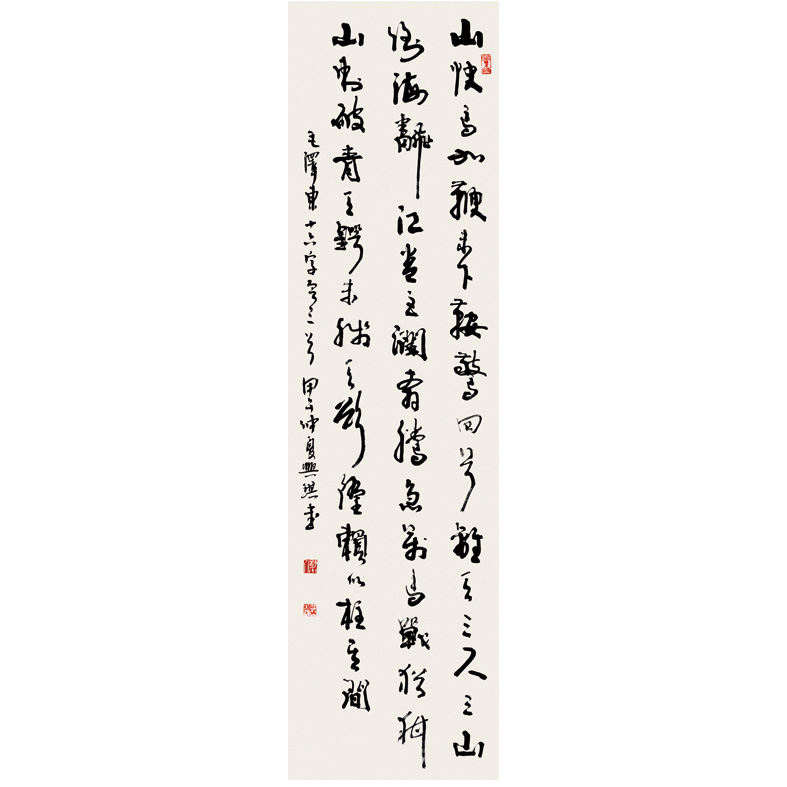 山快馬加鞭未下鞍驚回首離天三尺三山
倒海翻江卷巨瀾奔騰急萬馬戰猶酣
山刺破青天鍔未殘天欲墮賴以柱其間
毛澤東十六字令三首 甲午仲夏興書